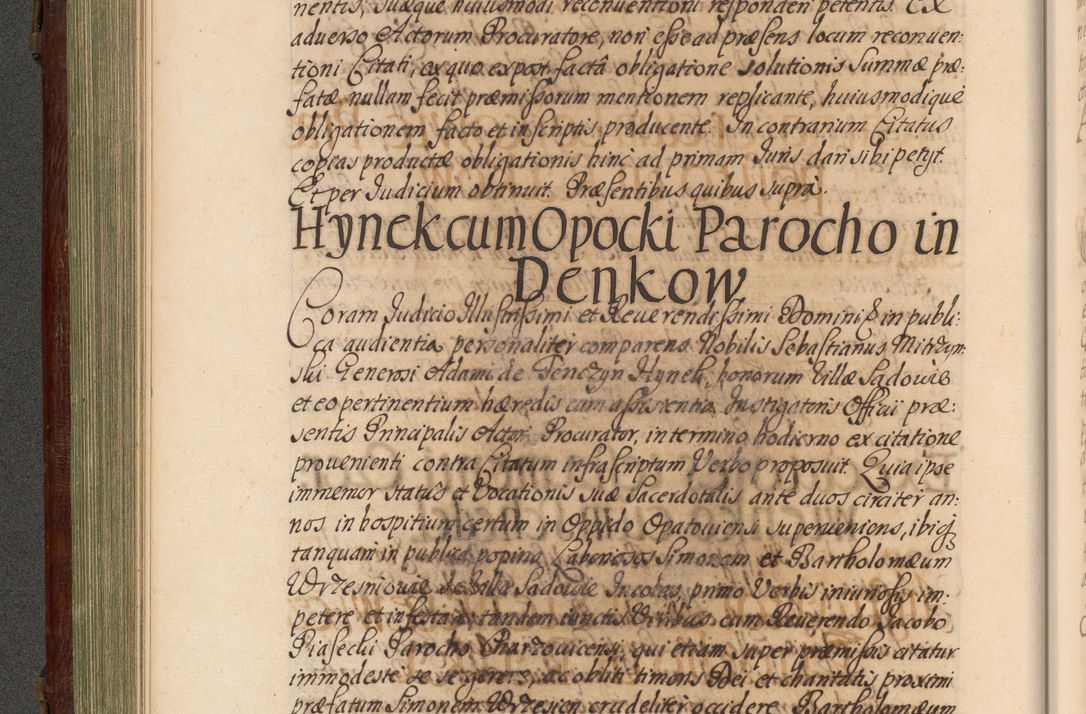 nentis, suæque huiusmodi reconventioni responderi petentis. Ex
adverso Actorum Procuratore, non esse ad præsens locum reconuen:
tioni Citati, ex quo expost factâ obligatione solutionis summæ præ:
fatæ nullam fecit præmissorum mentionem replicante, huiusmodique
obligationem facto et in scriptis producente. In contrarium Citatus
copias productæ obligationis hinc ad primam Juris dari sibi petijt.
Et per Judicium obtinuit. Præsentibus quibus suprà.
Hynek cum Opocki Parocho in
Denkow
Coram Judicio Illustrissimi et Reuerendissimi Domini in publi:
ca audientia personaliter comparens Nobilis Sebastianus Mitrzyn:
ski Generosi Adami de Tenczyn Hynek, bonorum Villæ Sadowie
et eo pertinentium hæredis cum assistentia Instigatoris Officij præ:
sentis Principalis Actor Procurator, in termino hodierno ex citatione
prouenienti contra Citatum infrascriptum Verbo proposuit. Quia ipse
immemor status et Vocationis suæ Sacerdotalis ante duos circiter an:
nos in hospitium certum in Oppido Opatouiensi superueniens, ibiq
tanquam in publica popina Laboriosos Simonem et Bartholomæum
Wrzesniowie de Villa Sadowie Incolas, primo Verbis iniuriosis im:
petere et infestare tandem iunctis Viribus cum Reuerendo Jacobo
Piasecki Parocho Pharzouicensi, qui etiam super præmissis citatur
immodeste se gerens, ac obliti timoris Dei et charitatis proximi
præfatum Simonem Wrzesien crudeliter occidere Bartholomæum